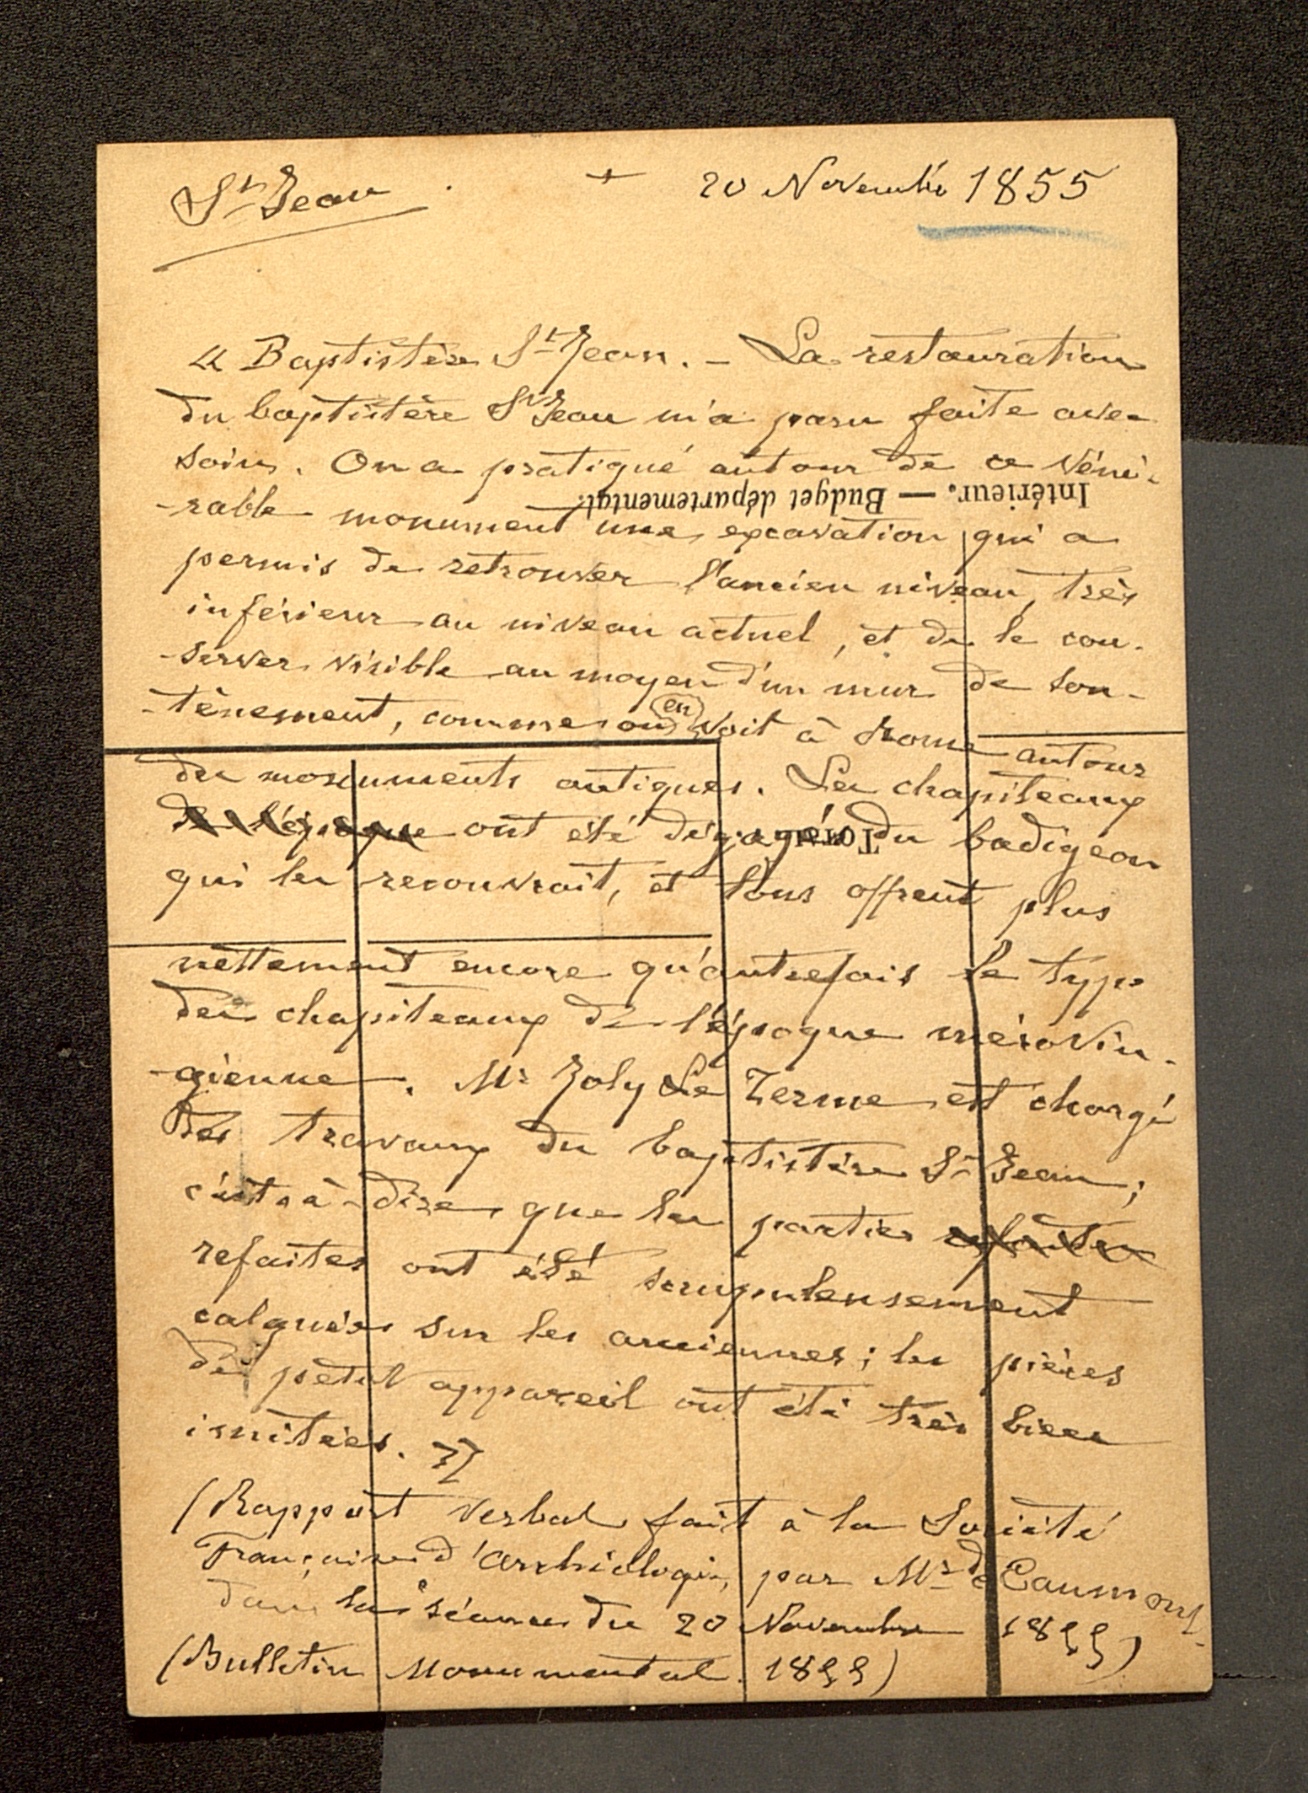 St Jean + 20 Novembre 1855
« Baptistère St Jean. – La restauration
du baptistère St Jean m'a paru faite avec
soin. On a pratiqué autour de ce véné-
Intérieur. — Budget départemental.
-rable monument une excavation qui a
permis de retrouver l'ancien niveau, très
inférieur au niveau actuel, et de le con-
-server visible au moyen d'un mur de sou-
-tènement, comme on en voit à Rome autour
des monuments antiques. Les chapiteaux
de l'époque ont été dégagés du badigeon
qui les recouvrait, et tous offrent plus
nettement encore qu'autrefois le type
des chapiteaux de l'époque mérovin-
-gienne. Mr Joly Le Terme est chargé
des travaux du baptistère St Jean;
c'est-à-dire que les parties refaites
refaites ont été scrupuleusement
calquées sur les anciennes; les pièces
de petit appareil ont été très bien
imitées. »
(Rapport verbal fait à la Société
Française d'Archéologie, par Mr de Caumont
dans la séance du 20 Novembre 1855)
(Bulletin Monumental. 1855)